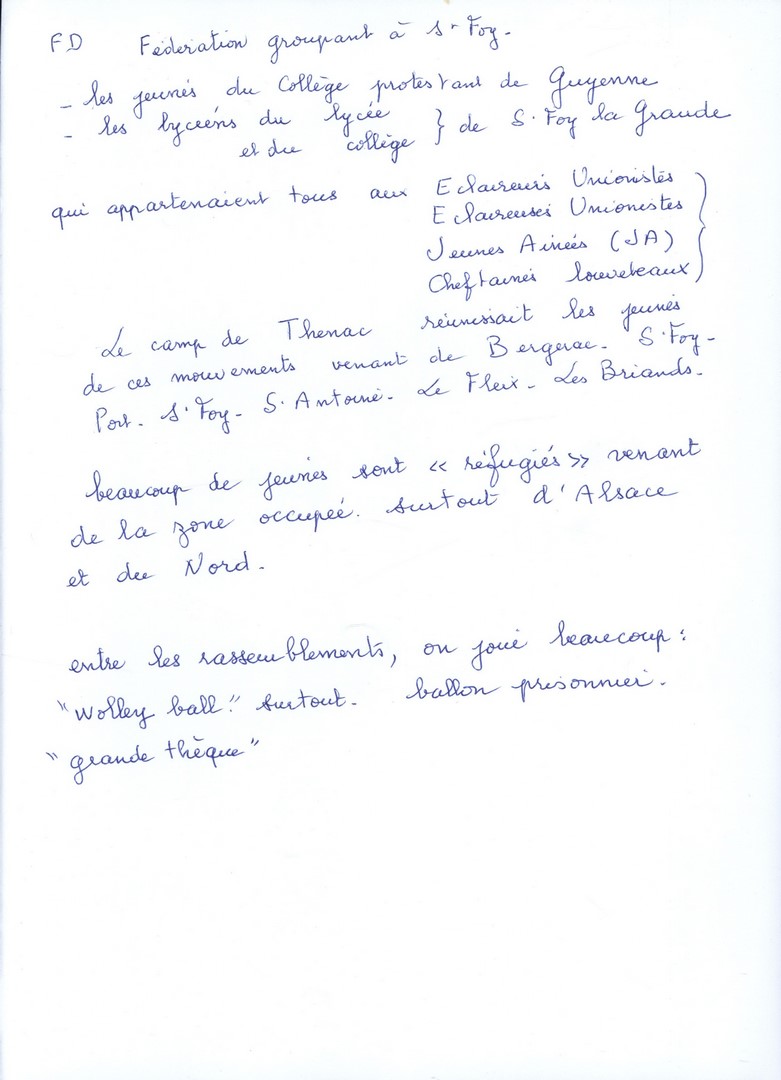 FD Fédération groupant à S^t Foy.
- les jeunes du Collège protestant de Guyenne
- les lycéens du lycée
et du collège } de S. Foy la Grande
qui appartenaient tous aux Eclaireurs Unionistes
Eclaireuses Unionistes
Jeunes Ainées (JA)
Cheftaines louveteaux
Le camp de Thenac réunissait les jeunes
de ces mouvements venant de Bergerac. S. Foy -
Port. S. Foy - S. Antoine. Le Fleix - Les Briands.
beaucoup de jeunes sont « réfugiés » venant
de la zone occupée. surtout d'Alsace
et du Nord.
entre les rassemblements, on joue beaucoup :
"wolley ball" surtout. ballon prisonnier.
"grande thèque"